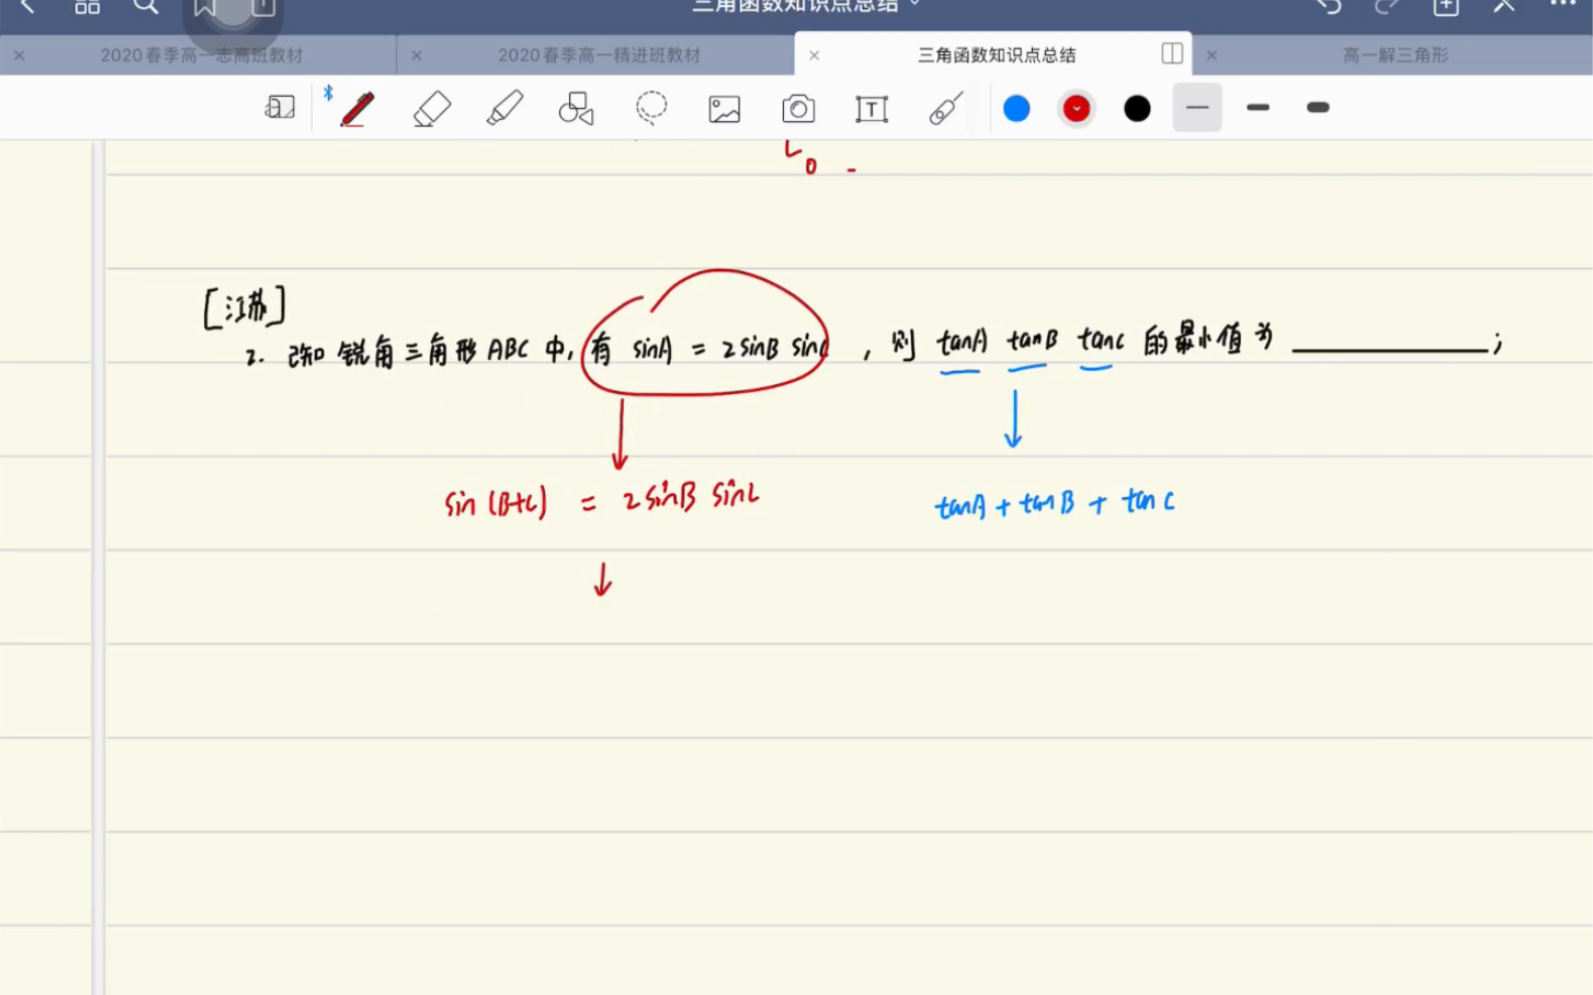 三角函数知识点总结
2020春季高一志高班教材
2020春季高一精进班教材
三角函数知识点总结
高一解三角形
[江苏]
2. 已知 锐角三角形 ABC 中, 有 sinA = 2sinB sinC , 则 tanA tanB tanC 的最小值为 ;
sin (B+C) = 2sinB sinC
tanA + tanB + tanC